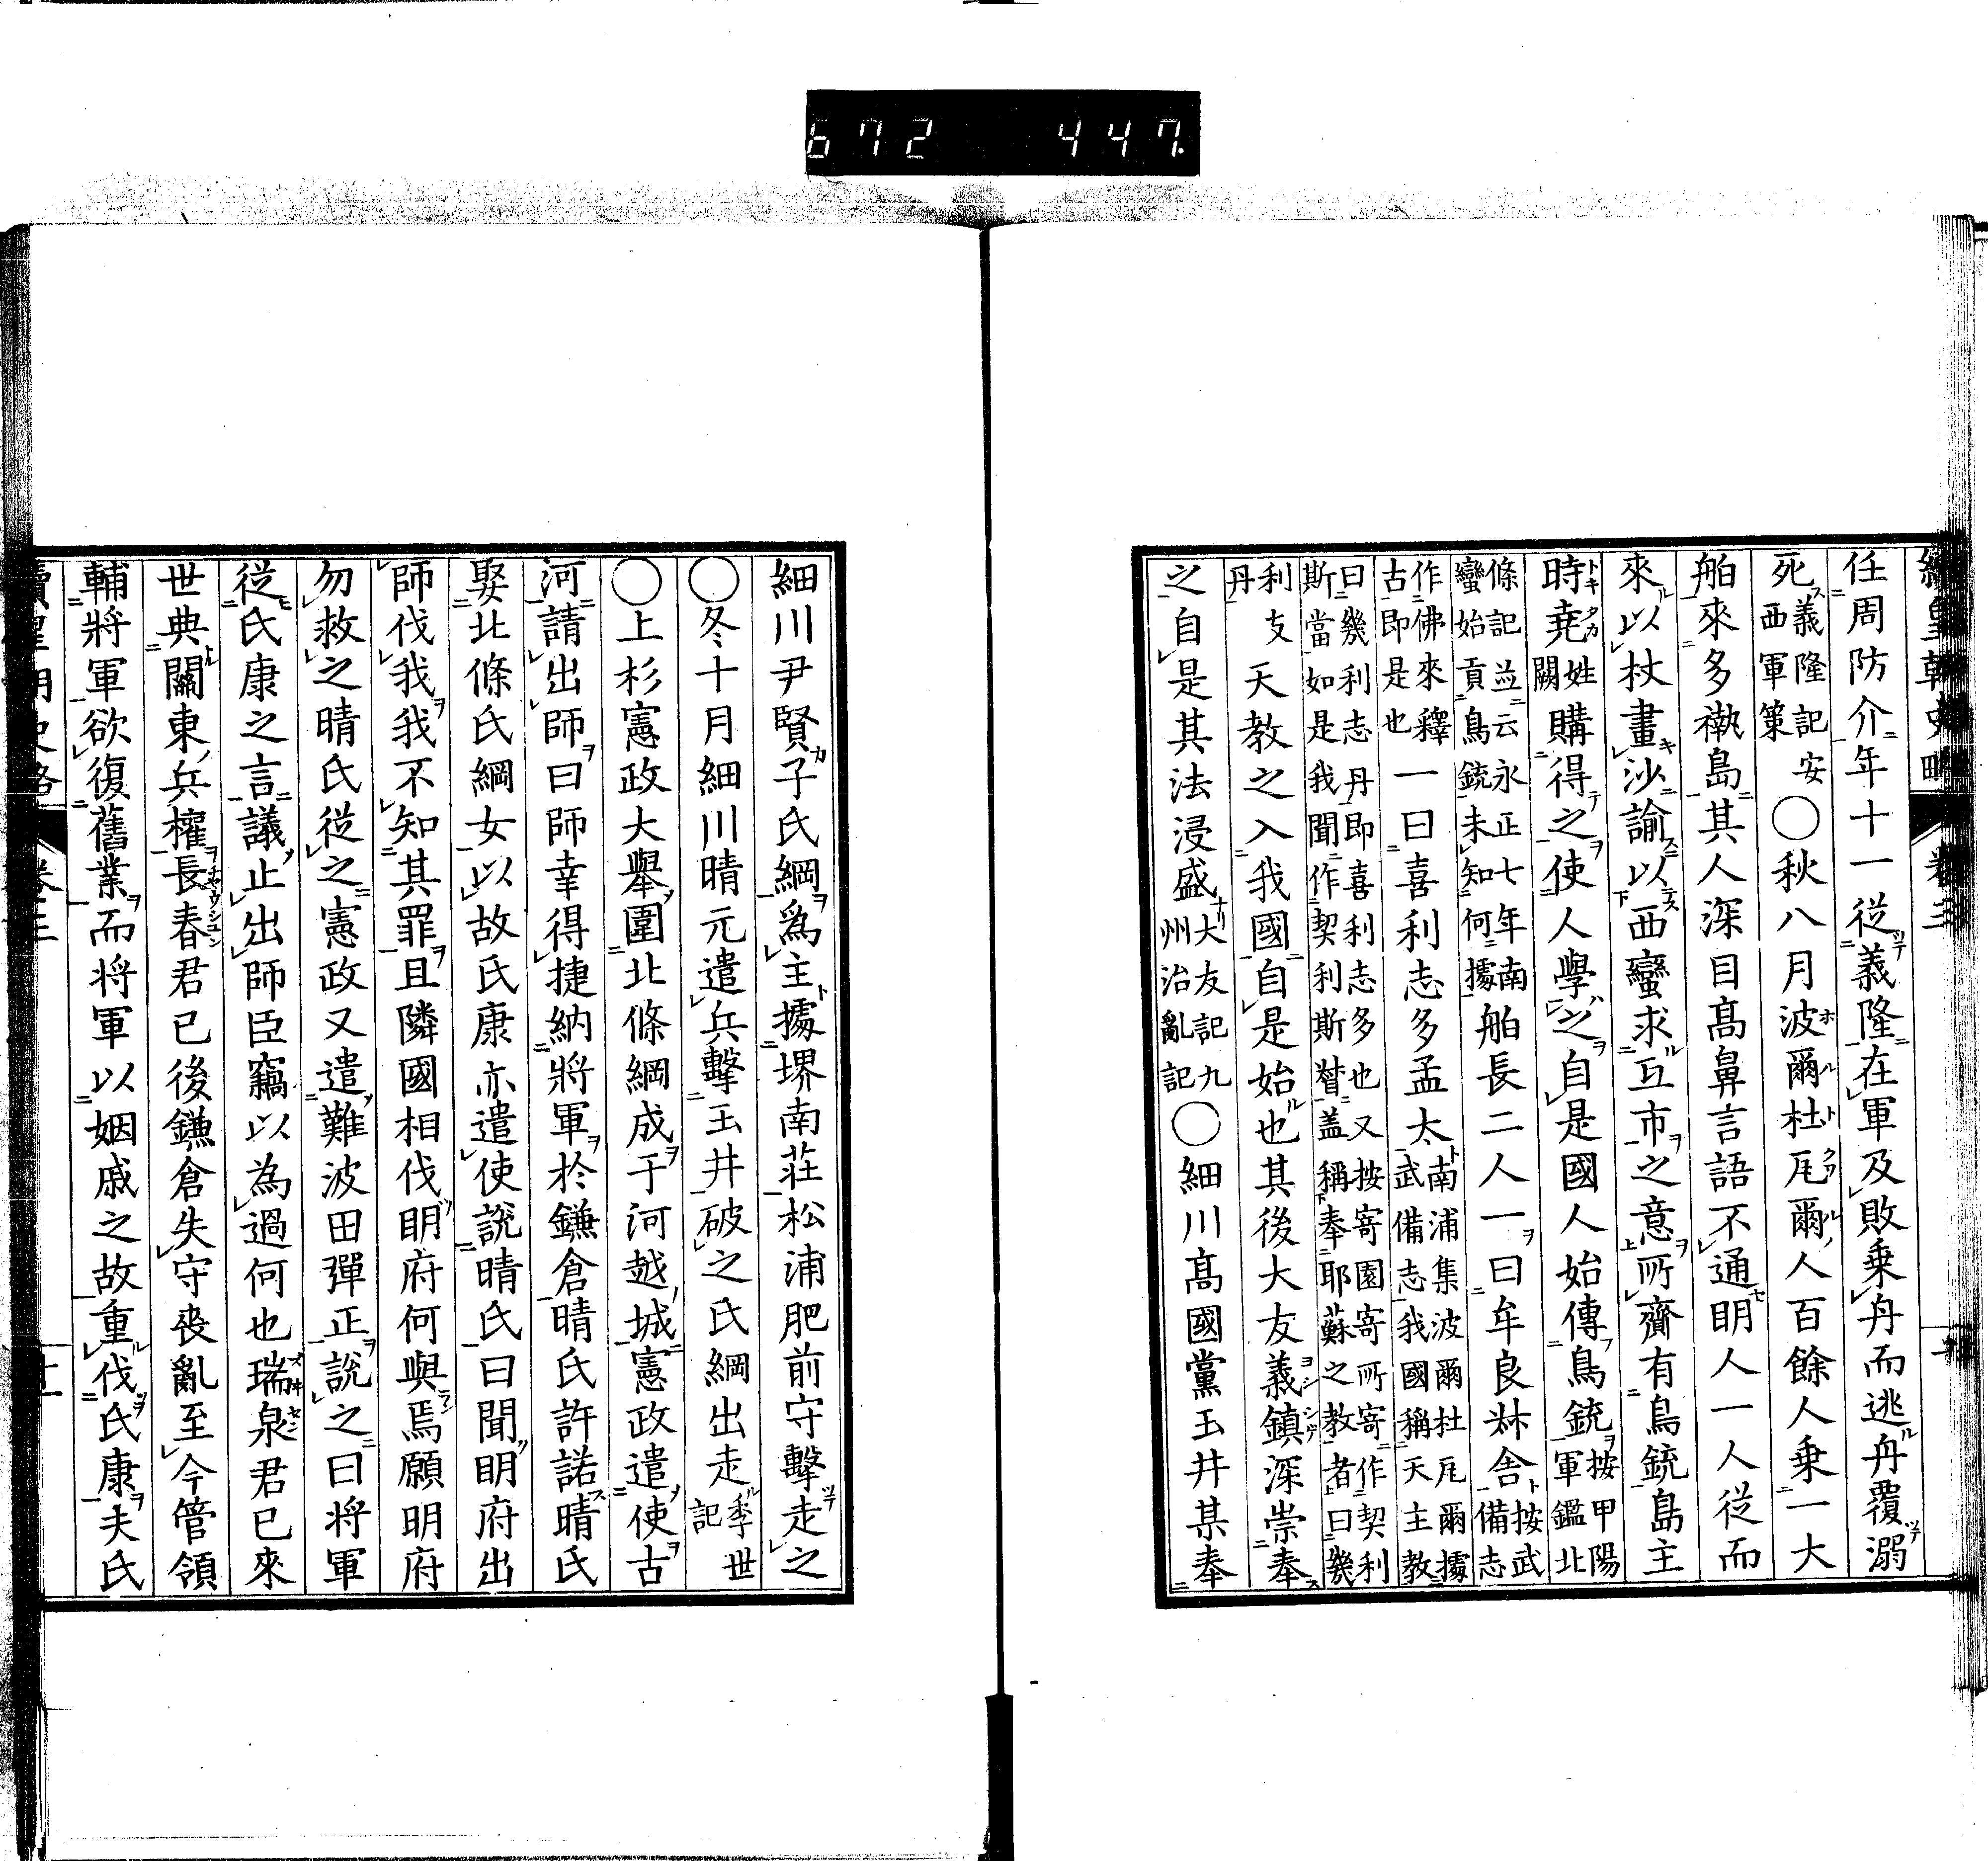 672 447
任周防介年十一從義隆在軍及敗乗舟而逃舟覆溺
死義隆記安西軍策〇秋八月波爾杜瓦爾人百餘人乗一大
舶來多褹島其人深目高鼻言語不通明人一人從而
來以杖畫沙諭以西蠻求互市之意所齎有鳥銃島主
時堯姓闕購得之使人學之自是國人始傳鳥銃按甲陽軍鑑北
條記並云永正七年南蠻始貢鳥銃未知何據舶長二人一曰牟良叔舎按武備志
作佛來釋古即是也一曰喜利志多孟太南浦集波爾杜瓦爾據武備志我國稱天主教
曰幾利志丹即喜利志多也又按寄園寄所寄作契利斯當如是我聞作契利斯督盖稱奉耶蘇之教者曰幾
利支丹天教之入我國自是始也其後大友義鎮深崇奉
之自是其法浸盛大友記九州治亂記〇細川髙國黨玉井某奉
細川尹賢子氏綱爲主據堺南莊松浦肥前守擊走之
〇冬十月細川晴元遣兵擊玉井破之氏綱出走季世記
〇上杉憲政大舉圍北條綱成于河越城憲政遣使古
河請出師曰師幸得捷納將軍於鎌倉晴氏許諾晴氏
娶北條氏綱女以故氏康亦遣使説晴氏曰聞明府出
師伐我我不知其罪且隣國相伐明府何與焉願明府
勿救之晴氏從之憲政又遣難波田彈正説之曰将軍
從氏康之言議止出師臣竊以為過何也瑞泉君已來
世典關東兵權長春君已後鎌倉失守喪亂至今管領
輔將軍欲復舊業而将軍以姻戚之故重伐氏康夫氏